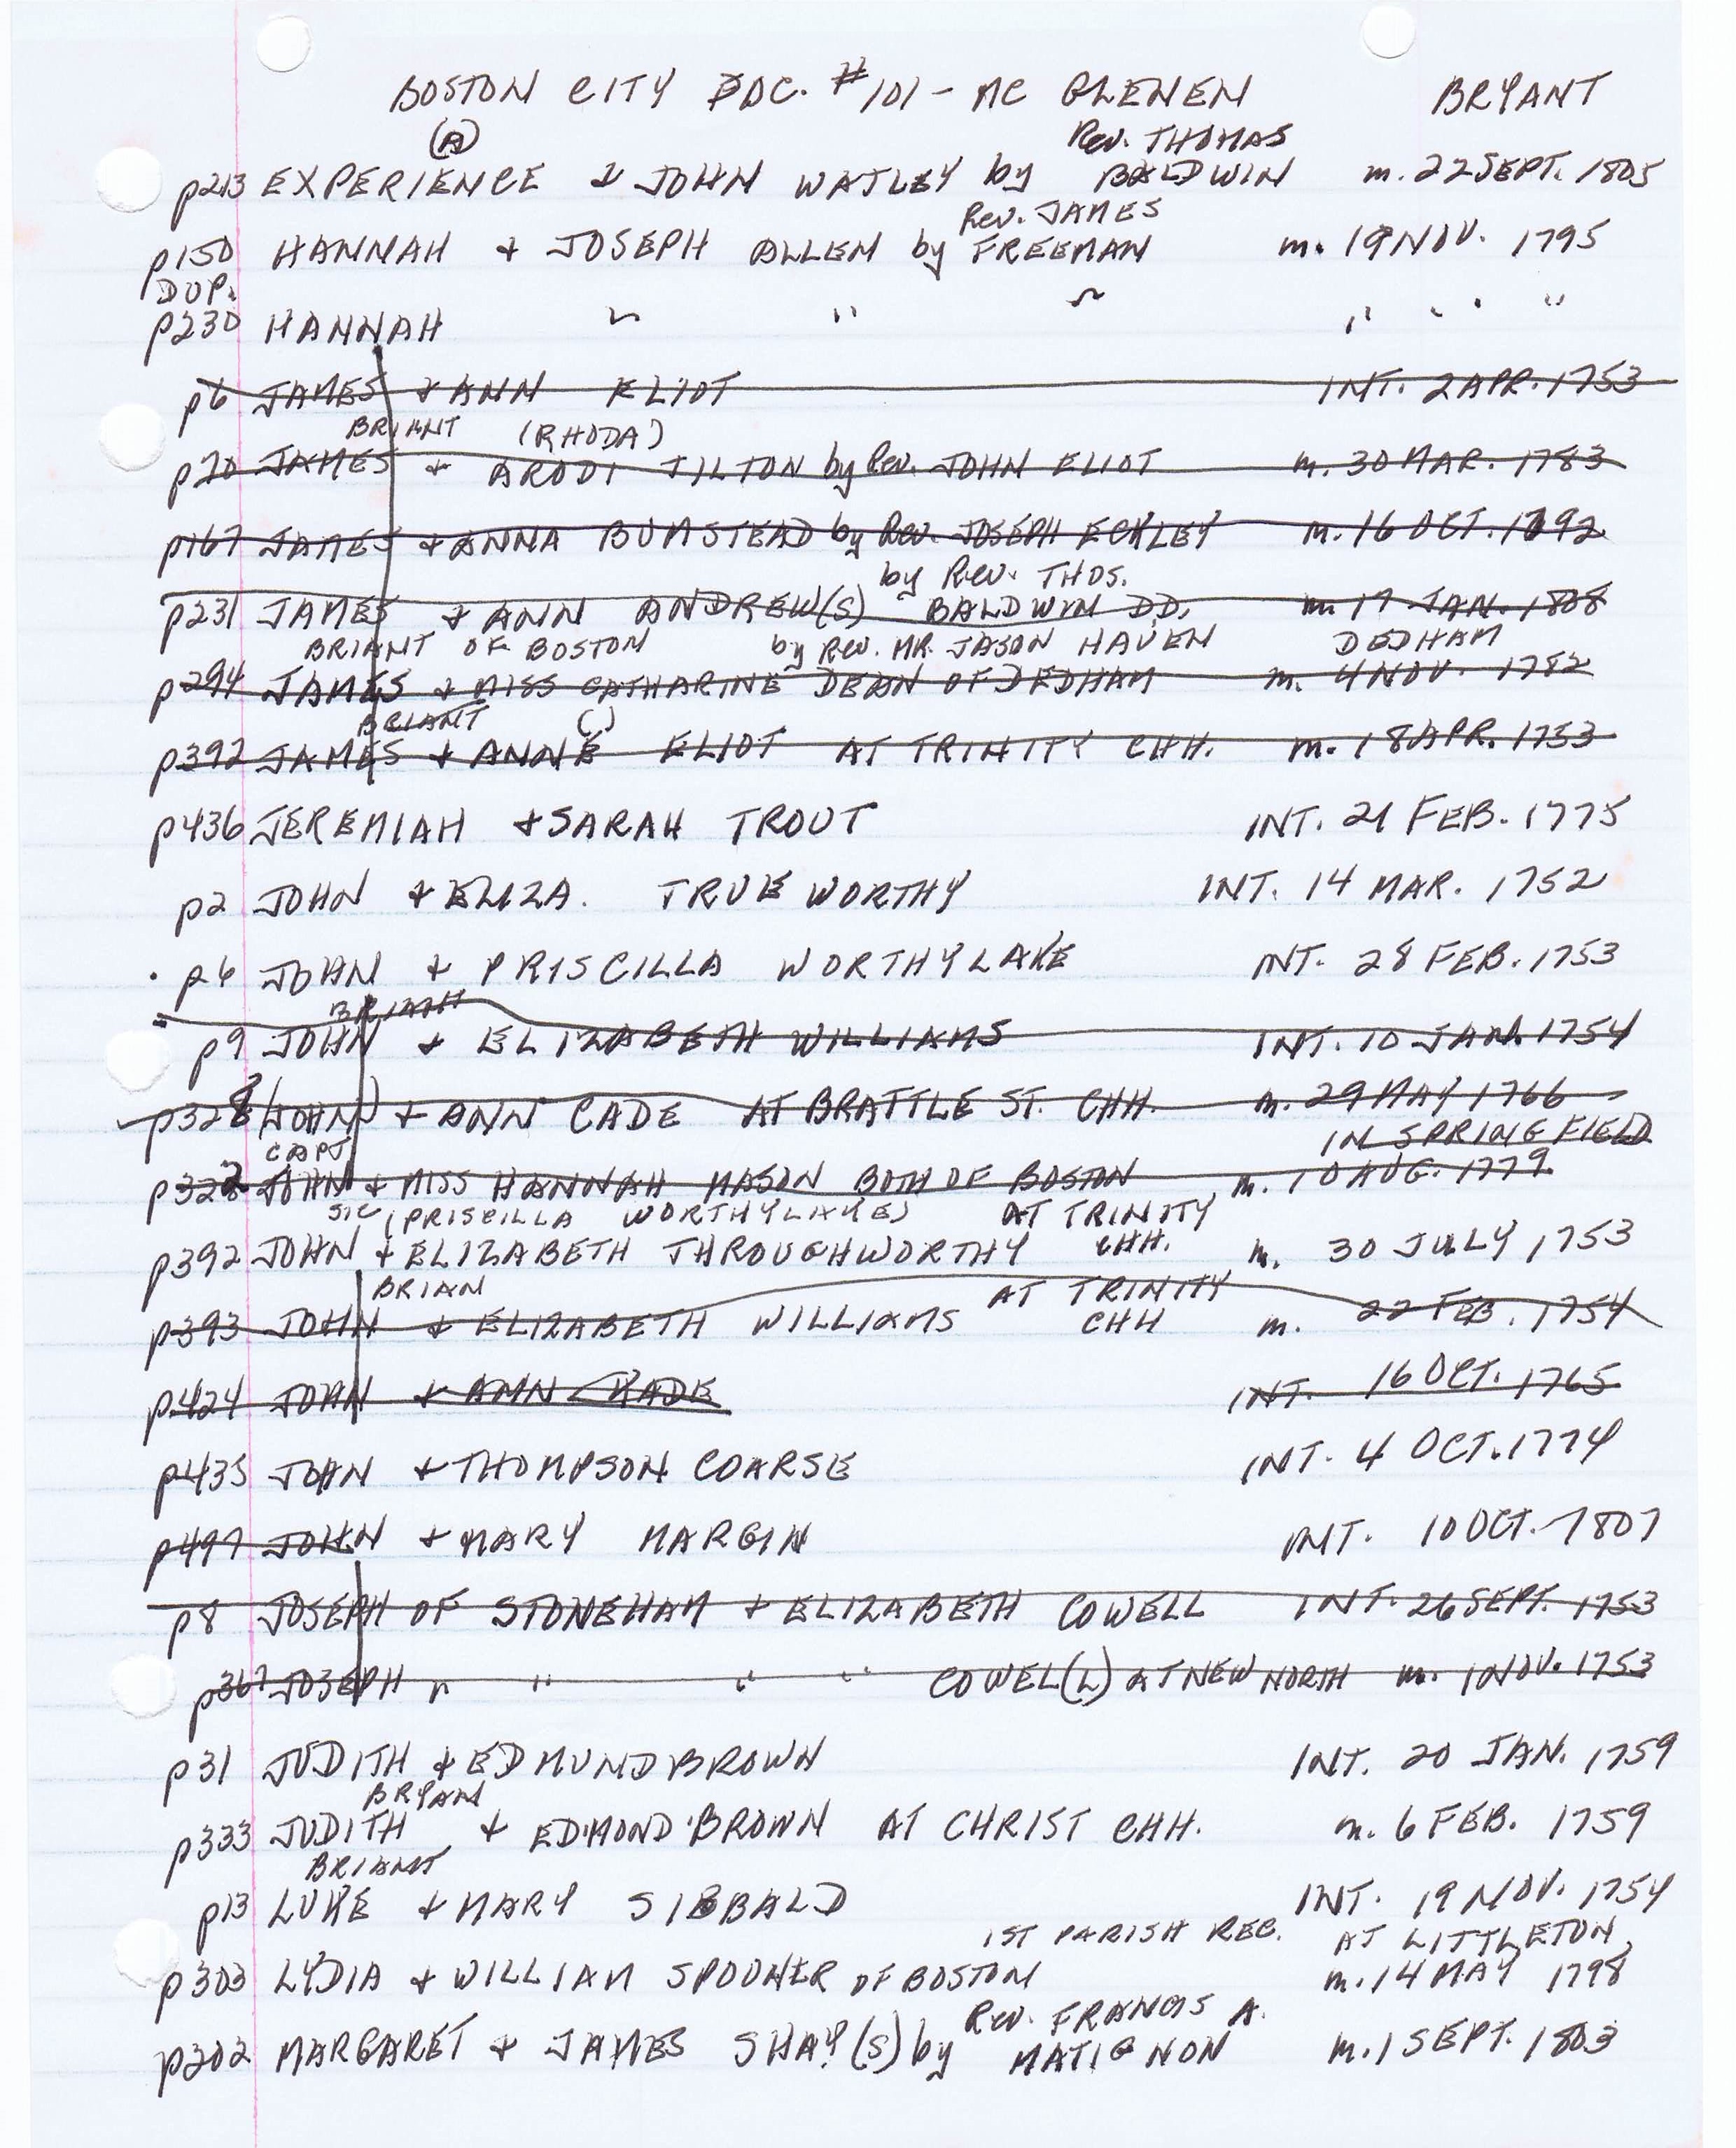 BOSTON CITY DOC. #101 - MC GLENEN BRYANT
(A) Rev. THOMAS
p213 EXPERIENCE & JOHN WATLEY by BALDWIN m. 22 SEPT. 1805
Rev. JAMES
p150 HANNAH & JOSEPH ALLEN by FREEMAN m. 19 NOV. 1795
DUP.
p230 HANNAH " " " " " "
p6 JAMES & ANN ELIOT INT. 2 APR. 1753
BRIANT (RHODA)
p70 JAMES & ARODI TILTON by Rev. JOHN ELIOT m. 30 MAR. 1783
p167 JAMES & ANNA BUMSTEAD by Rev. JOSEPH ECKLEY m. 16 OCT. 1792
by Rev. THOS.
p231 JAMES & ANN ANDREW(S) BALDWIN DD. m. 17 JAN. 1808
BRIANT OF BOSTON by Rev. MR. JASON HAVEN DEDHAM
p294 JAMES & MISS CATHARINE DEAN OF DEDHAM m. 4 NOV. 1782
BRIANT ( )
p392 JAMES & ANNE ELIOT AT TRINITY CHH. m. 18 APR. 1753
p436 JEREMIAH & SARAH TROUT INT. 21 FEB. 1775
p2 JOHN & ELIZA. TRUE WORTHY INT. 14 MAR. 1752
. p6 JOHN & PRISCILLA WORTHYLAKE INT. 28 FEB. 1753
p9 JOHN & ELIZABETH WILLIAMS INT. 10 JAN. 1754
p328 (JOHN) & ANN CADE AT BRATTLE ST. CHH. m. 29 MAY 1766
CAPT IN SPRINGFIELD
p322 JOHN & MISS HANNAH MASON BOTH OF BOSTON m. 10 AUG. 1779.
SIC (PRISCILLA WORTHYLAKE) AT TRINITY
p392 JOHN & ELIZABETH THROUGHWORTHY CHH. m. 30 JULY 1753
BRIAN AT TRINITY
p393 JOHN & ELIZABETH WILLIAMS CHH m. 22 FEB. 1754
p424 JOHN & ANN KADE INT. 16 OCT. 1765
p435 JOHN & THOMPSON COARSE INT. 4 OCT. 1774
p497 JOHN & MARY MARGIN INT. 10 OCT. 1807
p8 JOSEPH OF STONEHAM & ELIZABETH COWELL INT. 26 SEPT. 1753
p367 JOSEPH " " " " COWEL(L) AT NEW NORTH m. 1 NOV. 1753
p31 JUDITH & EDMUND BROWN INT. 20 JAN. 1759
BRYAN
p333 JUDITH & EDMOND BROWN AT CHRIST CHH. m. 6 FEB. 1759
BRIANT
p13 LUKE & MARY SIBBALD INT. 19 NOV. 1754
1ST PARISH REC. AT LITTLETON,
p303 LYDIA & WILLIAM SPOONER OF BOSTON m. 14 MAY 1798
Rev. FRANCIS A.
p202 MARGARET & JAMES SHAY(S) by MATIGNON m. 1 SEPT. 1803